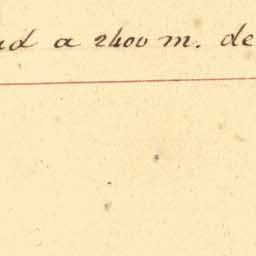 a 2400 m. de